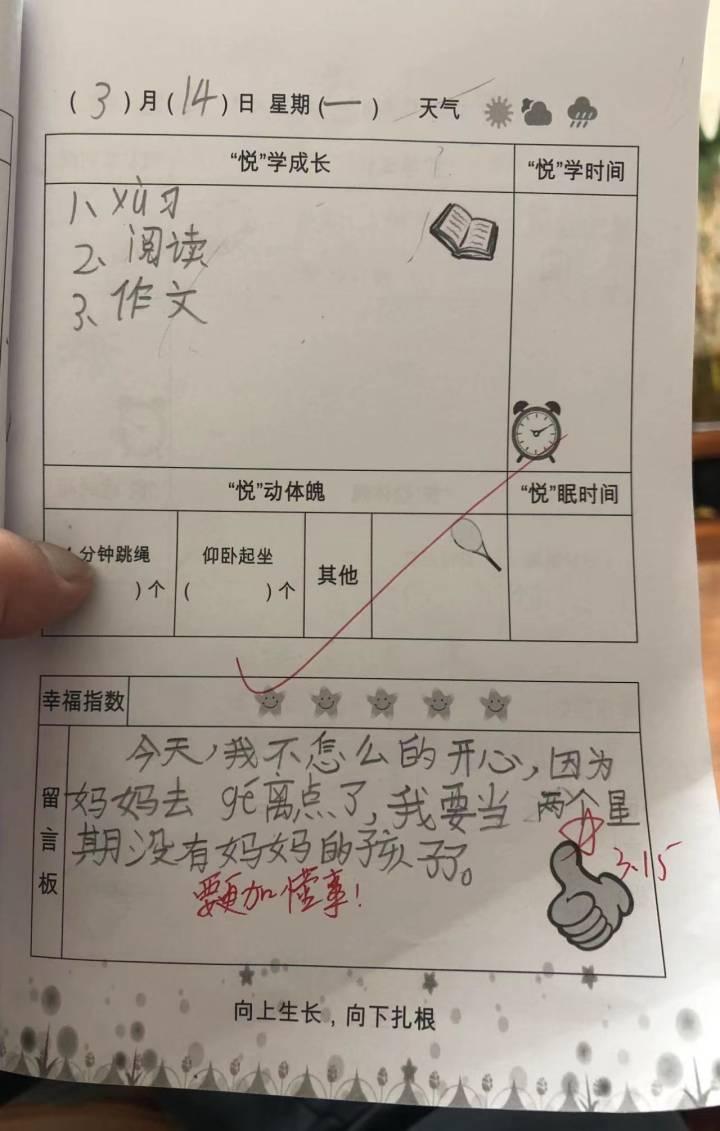 (3)月(14)日 星期(一) 天气
“悦”学成长 “悦”学时间
1、xù习
2、阅读
3、作文
“悦”动体魄 “悦”眠时间
分钟跳绳 仰卧起坐 其他
)个 ( )个
幸福指数
留言板
今天,我不怎么的开心,因为
妈妈去gé离点了,我要当两个星
期没有妈妈的孩子了。
要更加懂事!
3.15
向上生长,向下扎根